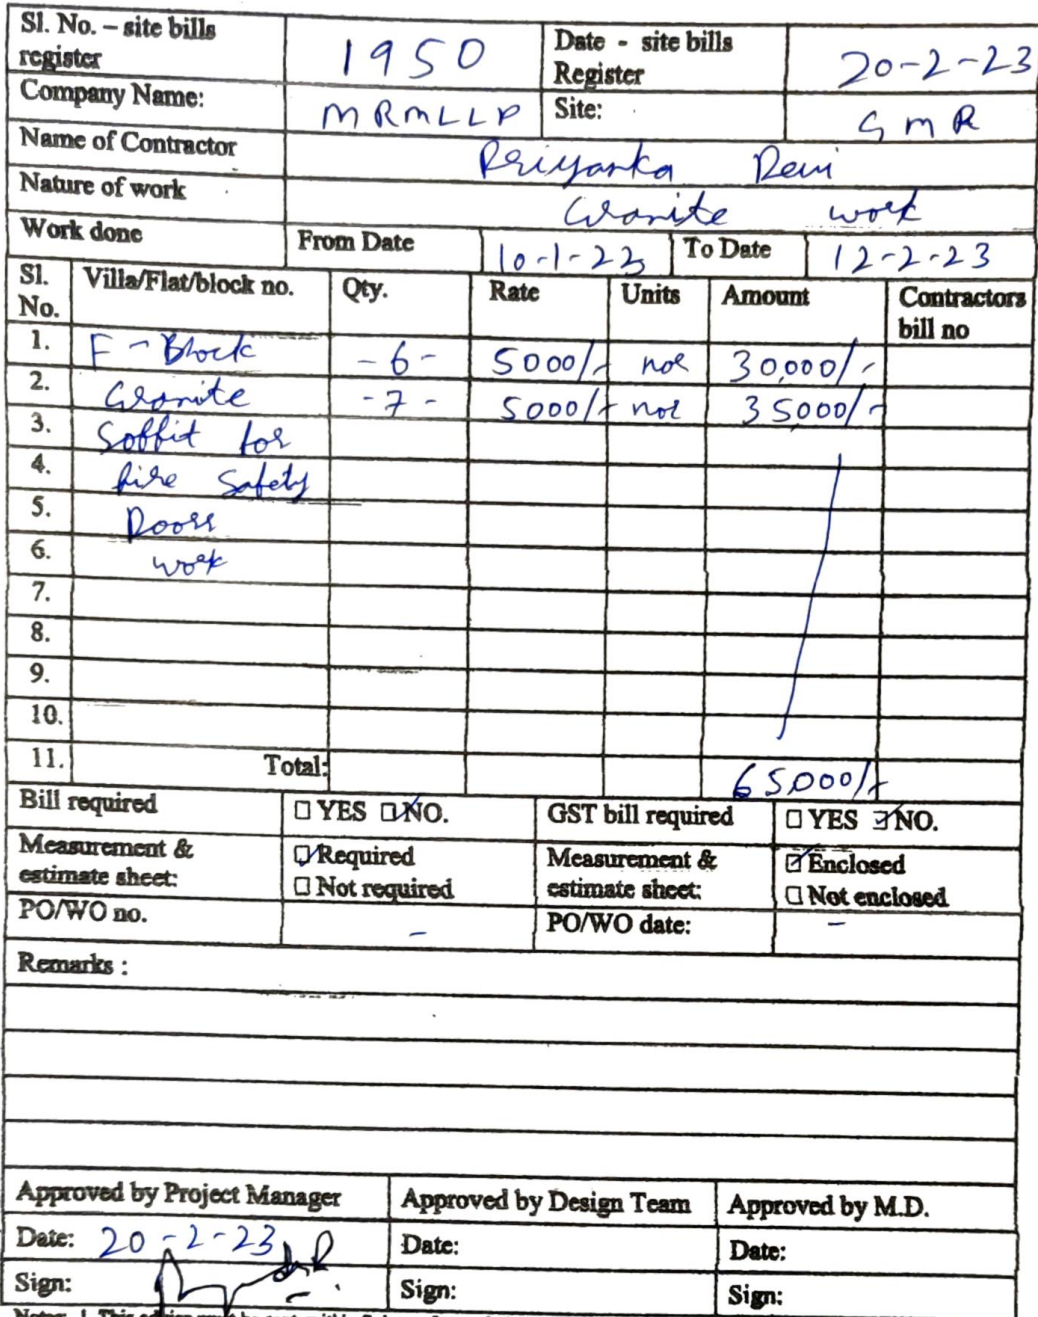 Sl. No. – site bills register 1950 Date - site bills Register 20-2-23
Company Name: MRMLLP Site: GMR
Name of Contractor Priyanka Devi
Nature of work Granite work
Work done From Date 10-1-23 To Date 12-2-23
Sl. No. Villa/Flat/block no. Qty. Rate Units Amount Contractors bill no
1. F-Block -6- 5000/- nos 30,000/-
2. Granite -7- 5000/- nos 35,000/-
3. Soffit for
4. fire Safety
5. Doors
6. work
7.
8.
9.
10.
11. Total: 65,000/-
Bill required ☐ YES ☑ NO. GST bill required ☐ YES ☑ NO.
Measurement & estimate sheet: ☑ Required ☐ Not required Measurement & estimate sheet: ☑ Enclosed ☐ Not enclosed
PO/WO no. - PO/WO date: -
Remarks :
Approved by Project Manager Approved by Design Team Approved by M.D.
Date: 20-2-23 Date: Date:
Sign: Sign: Sign: